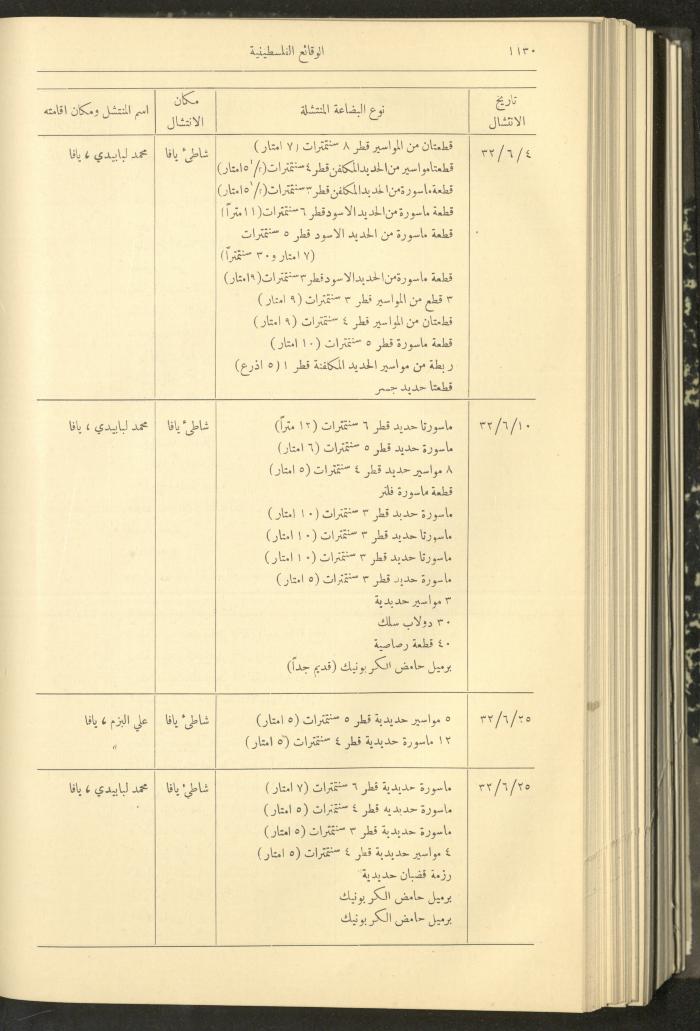 ١١٣٠
الوقائع الفلسطينية
تاريخ الانتشال
نوع البضاعة المنتشلة
مكان الانتشال
اسم المنتشل ومكان اقامته
٣٢/٦/٤
قطعتان من المواسير قطر ٨ سنتمترات (٧ امتار)
شاطئ يافا
محمد لبابيدي ، يافا
قطعتا مواسير من الحديد المكلفن قطر ٤ سنتمترات (٥١/٢ امتار)
قطعة ماسورة من الحديد المكلفن قطر ٣ سنتمترات (٥١/٢ امتار)
قطعة ماسورة من الحديد الاسود قطر ٦ سنتمترات (١١ متراً)
قطعة ماسورة من الحديد الاسود قطر ٥ سنتمترات
(٧ امتار و٣٠ سنتمتراً)
قطعة ماسورة من الحديد الاسود قطر ٣ سنتمترات (٩ امتار)
٣ قطع من المواسير قطر ٣ سنتمترات (٩ امتار)
قطعتان من المواسير قطر ٤ سنتمترات (٩ امتار)
قطعة ماسورة قطر ٥ سنتمترات (١٠ امتار)
ربطة من مواسير الحديد المكلفنة قطر ١ (٥ اذرع)
قطعتا حديد جسر
٣٢/٦/١٠
ماسورتا حديد قطر ٦ سنتمترات (١٢ متراً)
شاطئ يافا
محمد لبابيدي ، يافا
ماسورة حديد قطر ٥ سنتمترات (٦ امتار)
٨ مواسير حديد قطر ٤ سنتمترات (٥ امتار)
قطعة ماسورة فلتر
ماسورة حديد قطر ٣ سنتمترات (١٠ امتار)
ماسورتا حديد قطر ٣ سنتمترات (١٠ امتار)
ماسورتا حديد قطر ٣ سنتمترات (١٠ امتار)
ماسورة حديد قطر ٣ سنتمترات (٥ امتار)
٣ مواسير حديدية
٣٠ دولاب سلك
٤٠ قطعة رصاصية
برميل حامض الكربونيك (قديم جداً)
٣٢/٦/٢٥
٥ مواسير حديدية قطر ٥ سنتمترات (٥ امتار)
شاطئ يافا
علي البزم ، يافا
١٢ ماسورة حديدية قطر ٤ سنتمترات (٥ امتار)
"
٣٢/٦/٢٥
ماسورة حديدية قطر ٦ سنتمترات (٧ امتار)
شاطئ يافا
محمد لبابيدي ، يافا
ماسورة حديدية قطر ٤ سنتمترات (٥ امتار)
ماسورة حديدية قطر ٣ سنتمترات (٥ امتار)
٤ مواسير حديدية قطر ٤ سنتمترات (٥ امتار)
رزمة قضبان حديدية
برميل حامض الكربونيك
برميل حامض الكربونيك